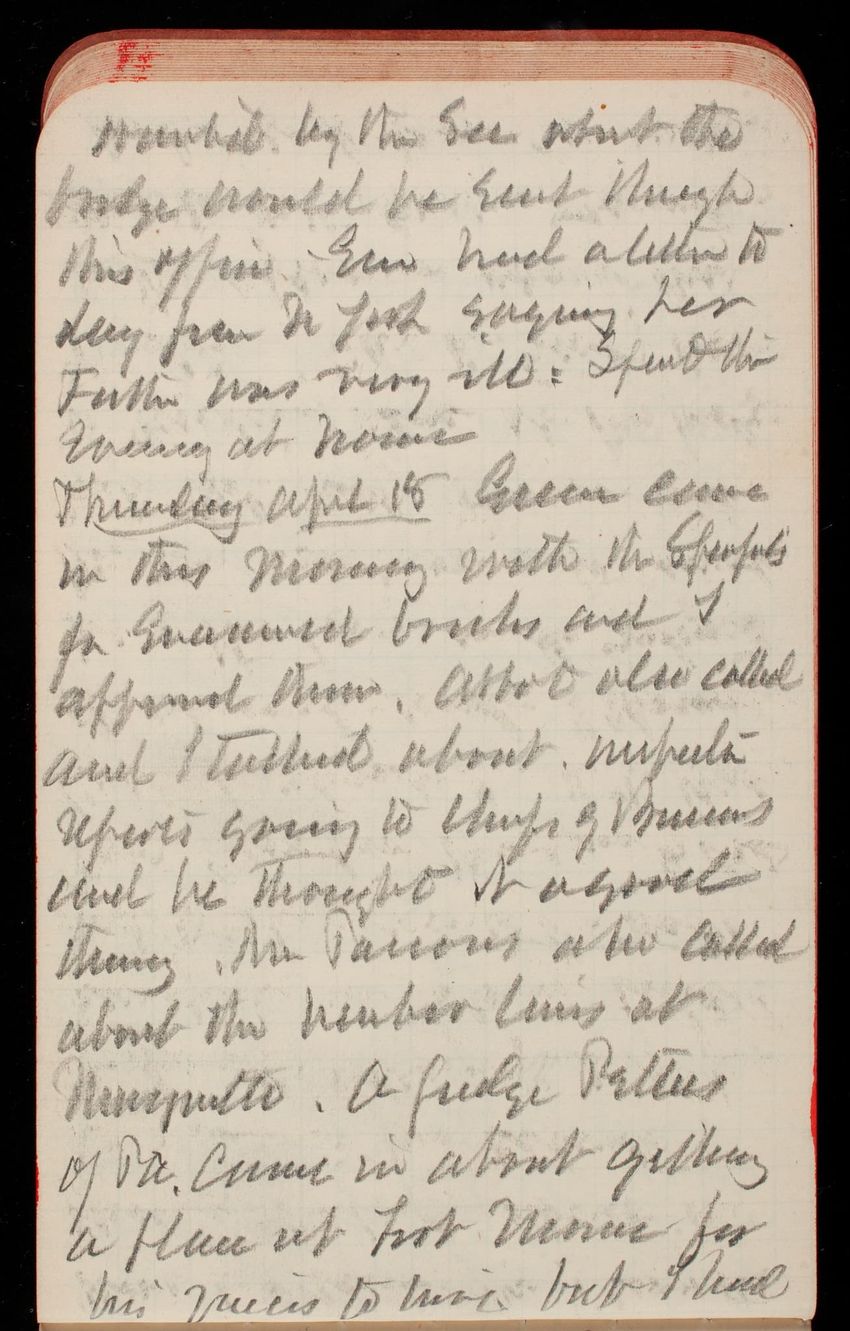 by the Sec about the
bridge would be sent through
this office. Em had a letter to
day from N York saying her
Father was very ill: Spent the
Evening at home
Thursday April 18 Green came
in this Morning with the
for Enameled bricks and I
approved them. Abbot also called
and I talked about. 
reports going to Chief of
and he thought it a good
thing. Mr Parsons also called
about the harbor lines at
Marquette. A Judge
of Pa. came in about getting
a place at Fort Monroe for
his to live but I had